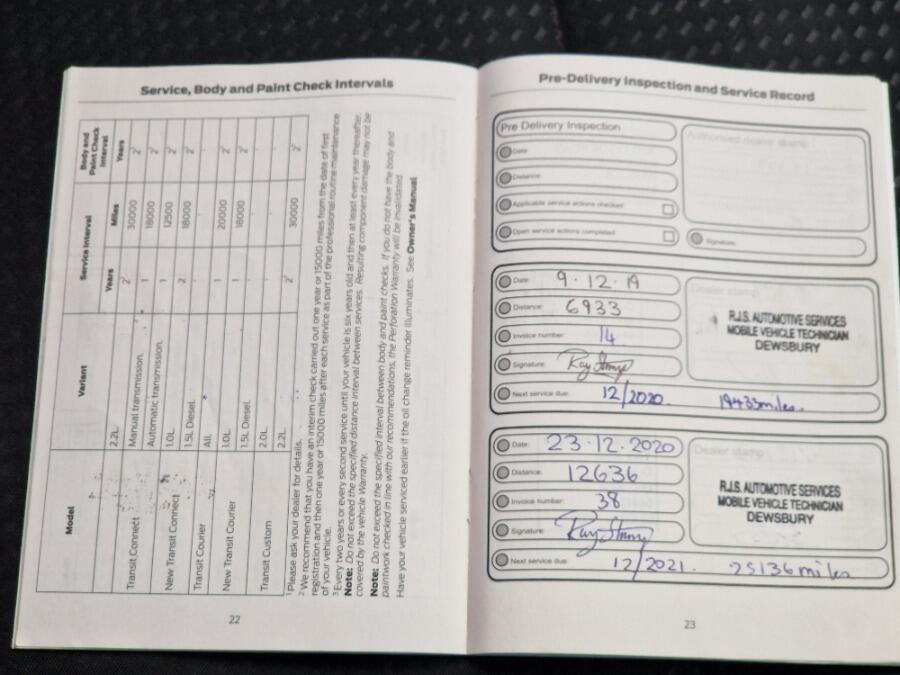 Service, Body and Paint Check Intervals
Model
Variant
Service Interval
Body and Paint Check Interval
Years
Miles
Years
2.2L
Transit Connect
Manual transmission.
2¹
30000
2²
Automatic transmission.
1
18000
2²
New Transit Connect
1.0L
1
12500
2²
1.5L Diesel.
2
18000
2²
Transit Courier
All.
New Transit Courier
1.0L
1
20000
2²
1.5L Diesel.
1
18000
2²
Transit Custom
2.0L
2.2L
2²
30000
2²
¹ Please ask your dealer for details.
² We recommend that you have an interim check carried out one year or 15000 miles from the date of first
registration and then one year or 15000 miles after each service as part of the professional routine maintenance
of your vehicle.
³ Every two years or every second service until your vehicle is six years old and then at least every year thereafter.
Note: Do not exceed the specified distance interval between services. Resulting component damage may not be
covered by the vehicle Warranty.
Note: Do not exceed the specified interval between body and paint checks. If you do not have the body and
paintwork checked in line with our recommendations, the Perforation Warranty will be invalidated.
Have your vehicle serviced earlier if the oil change reminder illuminates. See Owner's Manual
22
Pre-Delivery Inspection and Service Record
Pre Delivery Inspection
Date:
Distance:
Applicable service actions checked
Open service actions completed
Authorised dealer stamp
Signature:
Date: 9.12.19
Distance: 6933
Invoice number: 14
Signature: Ray Stringer
Next service due: 12/2020. 19433miles.
Dealer stamp
R.J.S. AUTOMOTIVE SERVICES
MOBILE VEHICLE TECHNICIAN
DEWSBURY
Date: 23.12.2020
Distance: 12636
Invoice number: 38
Signature:
Next service due: 12/2021. 25136miles
Dealer stamp
R.J.S. AUTOMOTIVE SERVICES
MOBILE VEHICLE TECHNICIAN
DEWSBURY
23